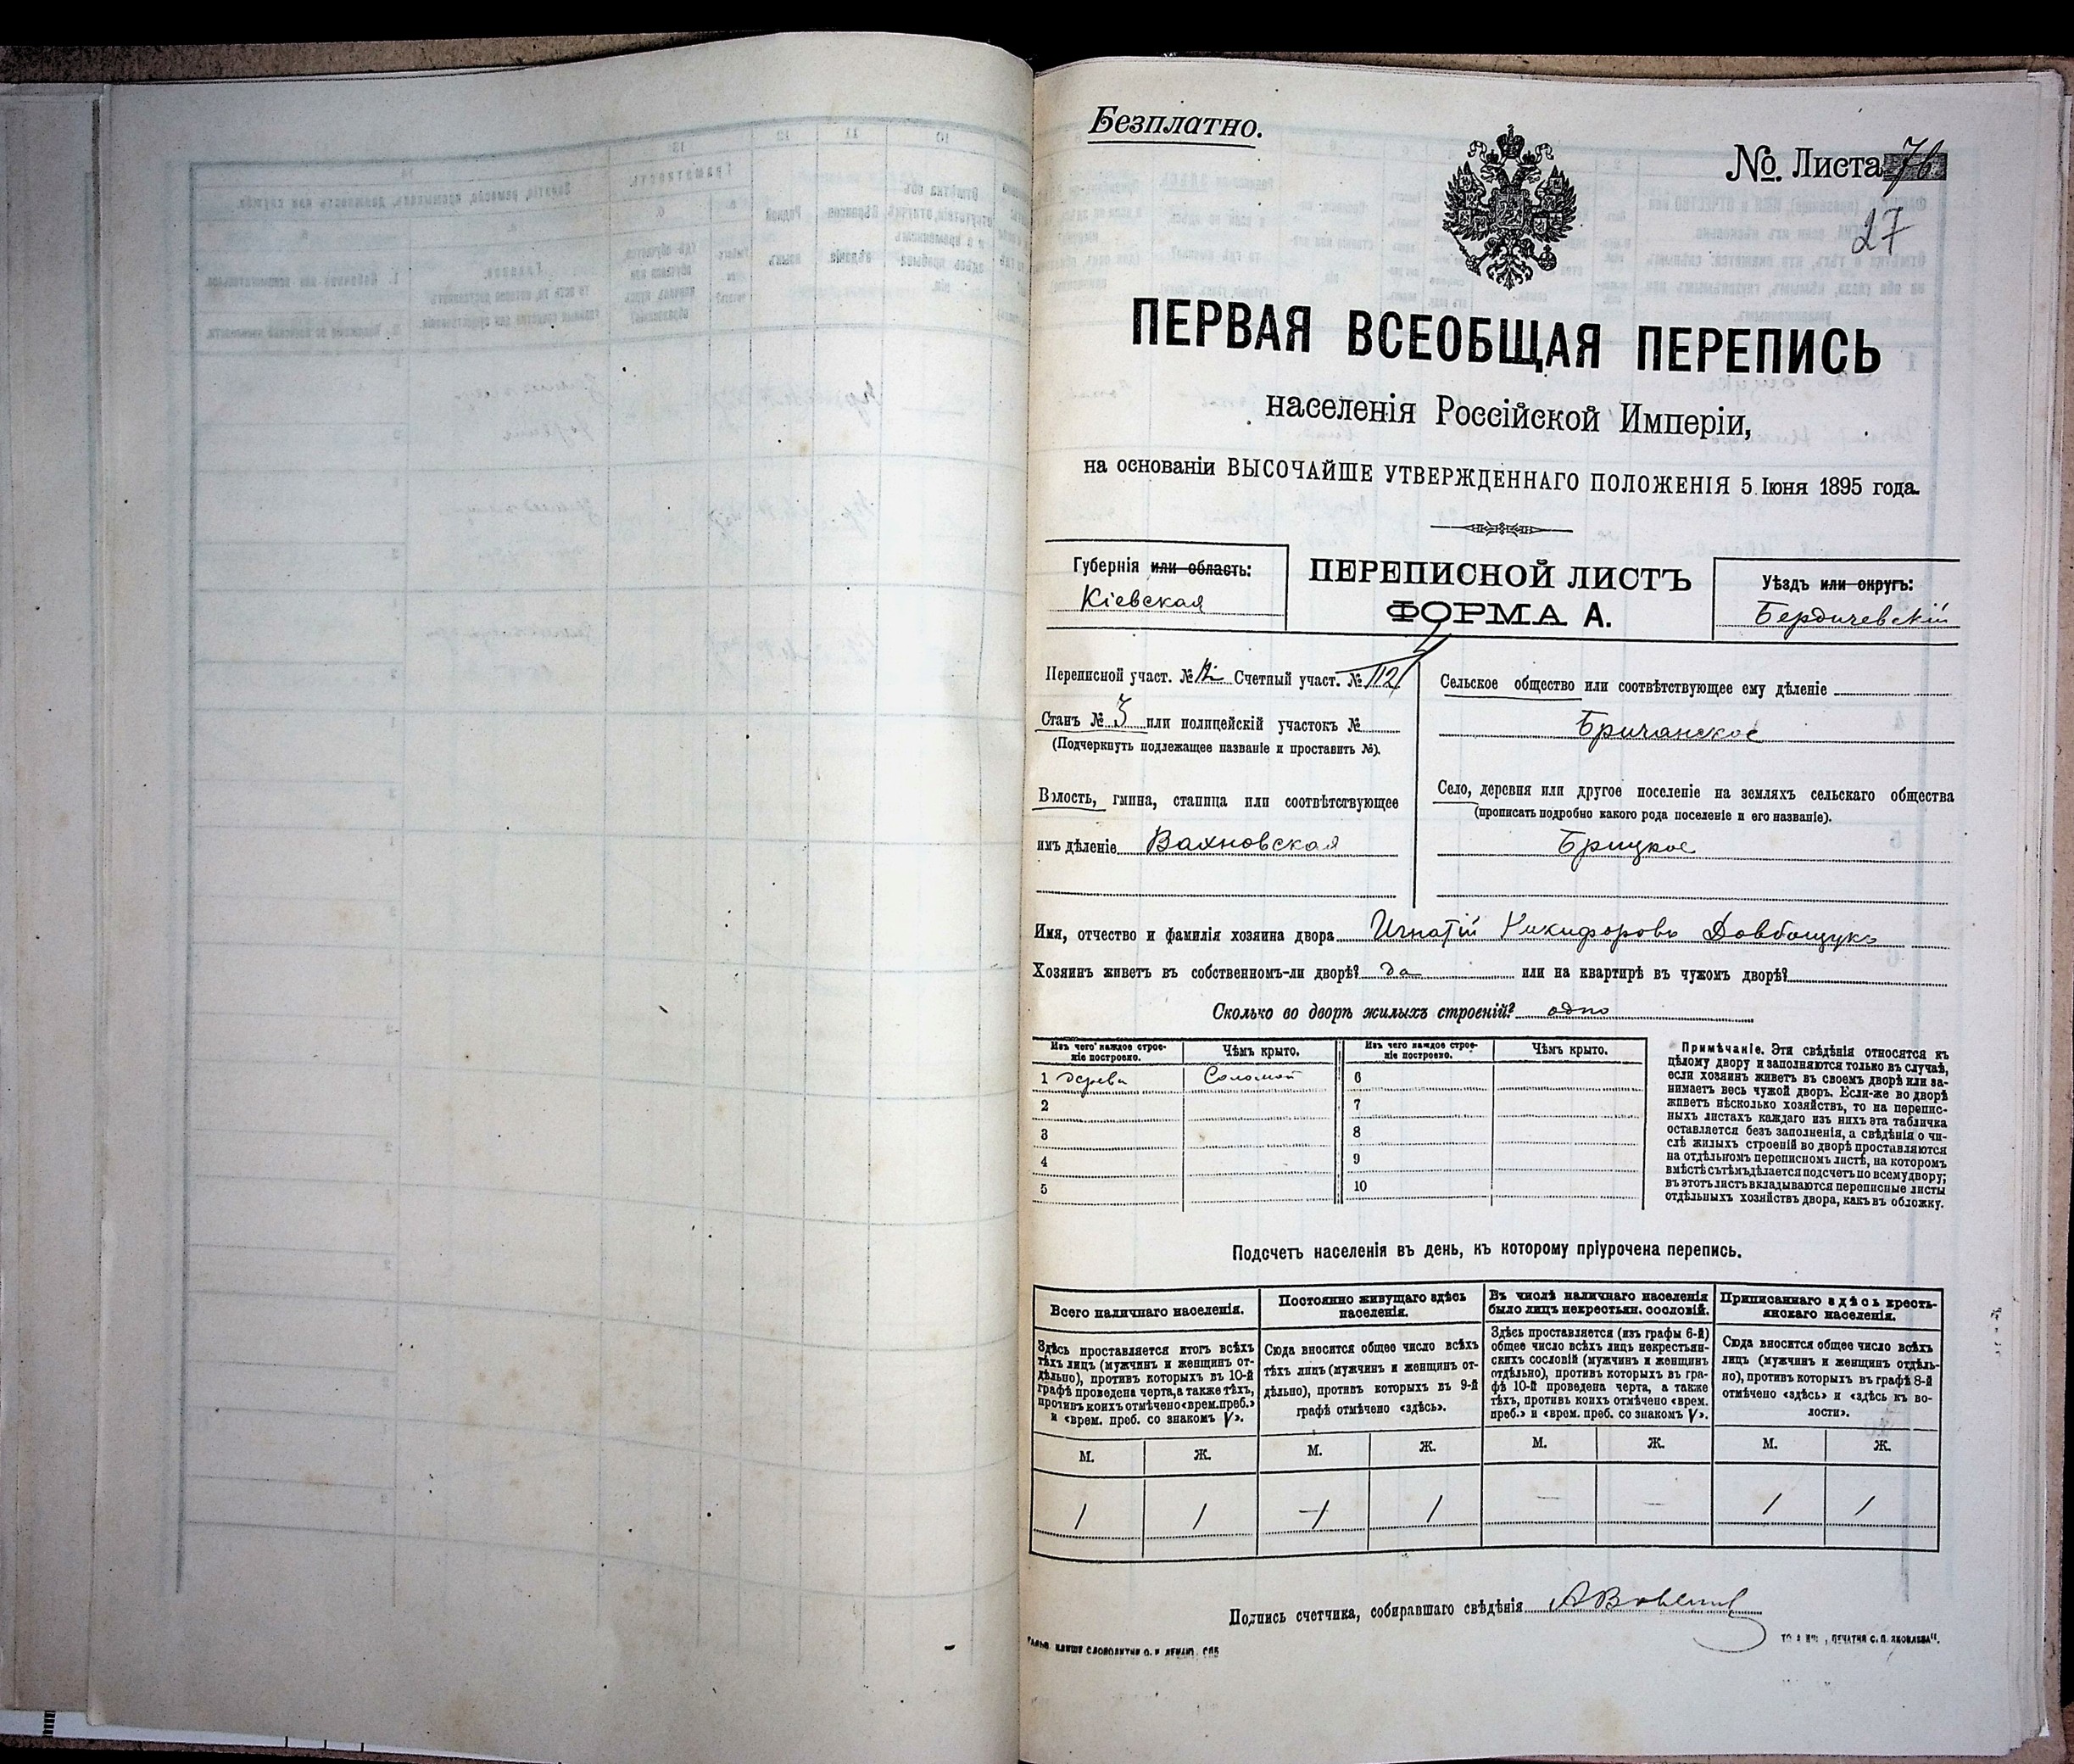 Безплатно.
№. Листа 76
27
ПЕРВАЯ ВСЕОБЩАЯ ПЕРЕПИСЬ
населенія Россійской Имперіи,
на основаніи ВЫСОЧАЙШЕ УТВЕРЖДЕННАГО ПОЛОЖЕНІЯ 5 Іюня 1895 года.
Губернія или область:
Кіевская
ПЕРЕПИСНОЙ ЛИСТЪ
ФОРМА А.
Уѣздъ или округъ:
Бердичевскій
Переписной участ. № Счетный участ. №
Станъ № 3 или полицейскій участокъ №
(Подчеркнуть подлежащее названіе и проставить №).
Волость, гмина, станица или соотвѣтствующее
имъ дѣленіе Вахновская
Сельское общество или соотвѣтствующее ему дѣленіе
Бричанское
Село, деревня или другое поселеніе на земляхъ сельскаго общества
(прописать подробно какого рода поселеніе и его названіе).
Брицкое
Имя, отчество и фамилія хозяина двора Игнатій Никифоровъ Довбощукъ
Хозяинъ живетъ въ собственномъ-ли дворѣ? да или на квартирѣ въ чужомъ дворѣ?
Сколько во дворѣ жилыхъ строеній? одно
Изъ чего каждое строе-
ніе построено.
Чѣмъ крыто.
Изъ чего каждое строе-
ніе построено.
Чѣмъ крыто.
1 дерева Соломой 6
2 7
3 8
4 9
5 10
Примѣчаніе. Эти свѣдѣнія относятся къ
цѣлому двору и заполняются только въ случаѣ,
если хозяинъ живетъ въ своемъ дворѣ или за-
нимаетъ весь чужой дворъ. Если-же во дворѣ
живетъ нѣсколько хозяйствъ, то на перепис-
ныхъ листахъ каждаго изъ нихъ эта табличка
оставляется безъ заполненія, а свѣдѣнія о чи-
слѣ жилыхъ строеній во дворѣ проставляются
на отдѣльномъ переписномъ листѣ, на которомъ
вмѣстѣ съ тѣмъ дѣлается подсчетъ по всему двору;
въ этотъ листъ вкладываются переписные листы
отдѣльныхъ хозяйствъ двора, какъ въ обложку.
Подсчетъ населенія въ день, къ которому пріурочена перепись.
Всего наличнаго населенія.
Здѣсь проставляется итогъ всѣхъ
тѣхъ лицъ (мужчинъ и женщинъ от-
дѣльно), противъ которыхъ въ 10-й
графѣ проведена черта, а также тѣхъ,
противъ коихъ отмѣчено «врем. преб.»
и «врем. преб. со знакомъ V».
Постоянно живущаго здѣсь
населенія.
Сюда вносится общее число всѣхъ
тѣхъ лицъ (мужчинъ и женщинъ от-
дѣльно), противъ которыхъ въ 9-й
графѣ отмѣчено «здѣсь».
Въ числѣ наличнаго населенія
было лицъ некрестьян. сословій.
Здѣсь проставляется (изъ графы 6-й)
общее число всѣхъ лицъ некрестьян-
скихъ сословій (мужчинъ и женщинъ
отдѣльно), противъ которыхъ въ гра-
фѣ 10-й проведена черта, а также
тѣхъ, противъ коихъ отмѣчено «врем.
преб.» и «врем. преб. со знакомъ V».
Приписаннаго здѣсь кресть-
янскаго населенія.
Сюда вносится общее число всѣхъ
лицъ (мужчинъ и женщинъ отдѣль-
но), противъ которыхъ въ графѣ 8-й
отмѣчено «здѣсь» и «здѣсь къ во-
лости».
М. Ж. М. Ж. М. Ж. М. Ж.
1 1 1 1 — — 1 1
Подпись счетчика, собиравшаго свѣдѣнія